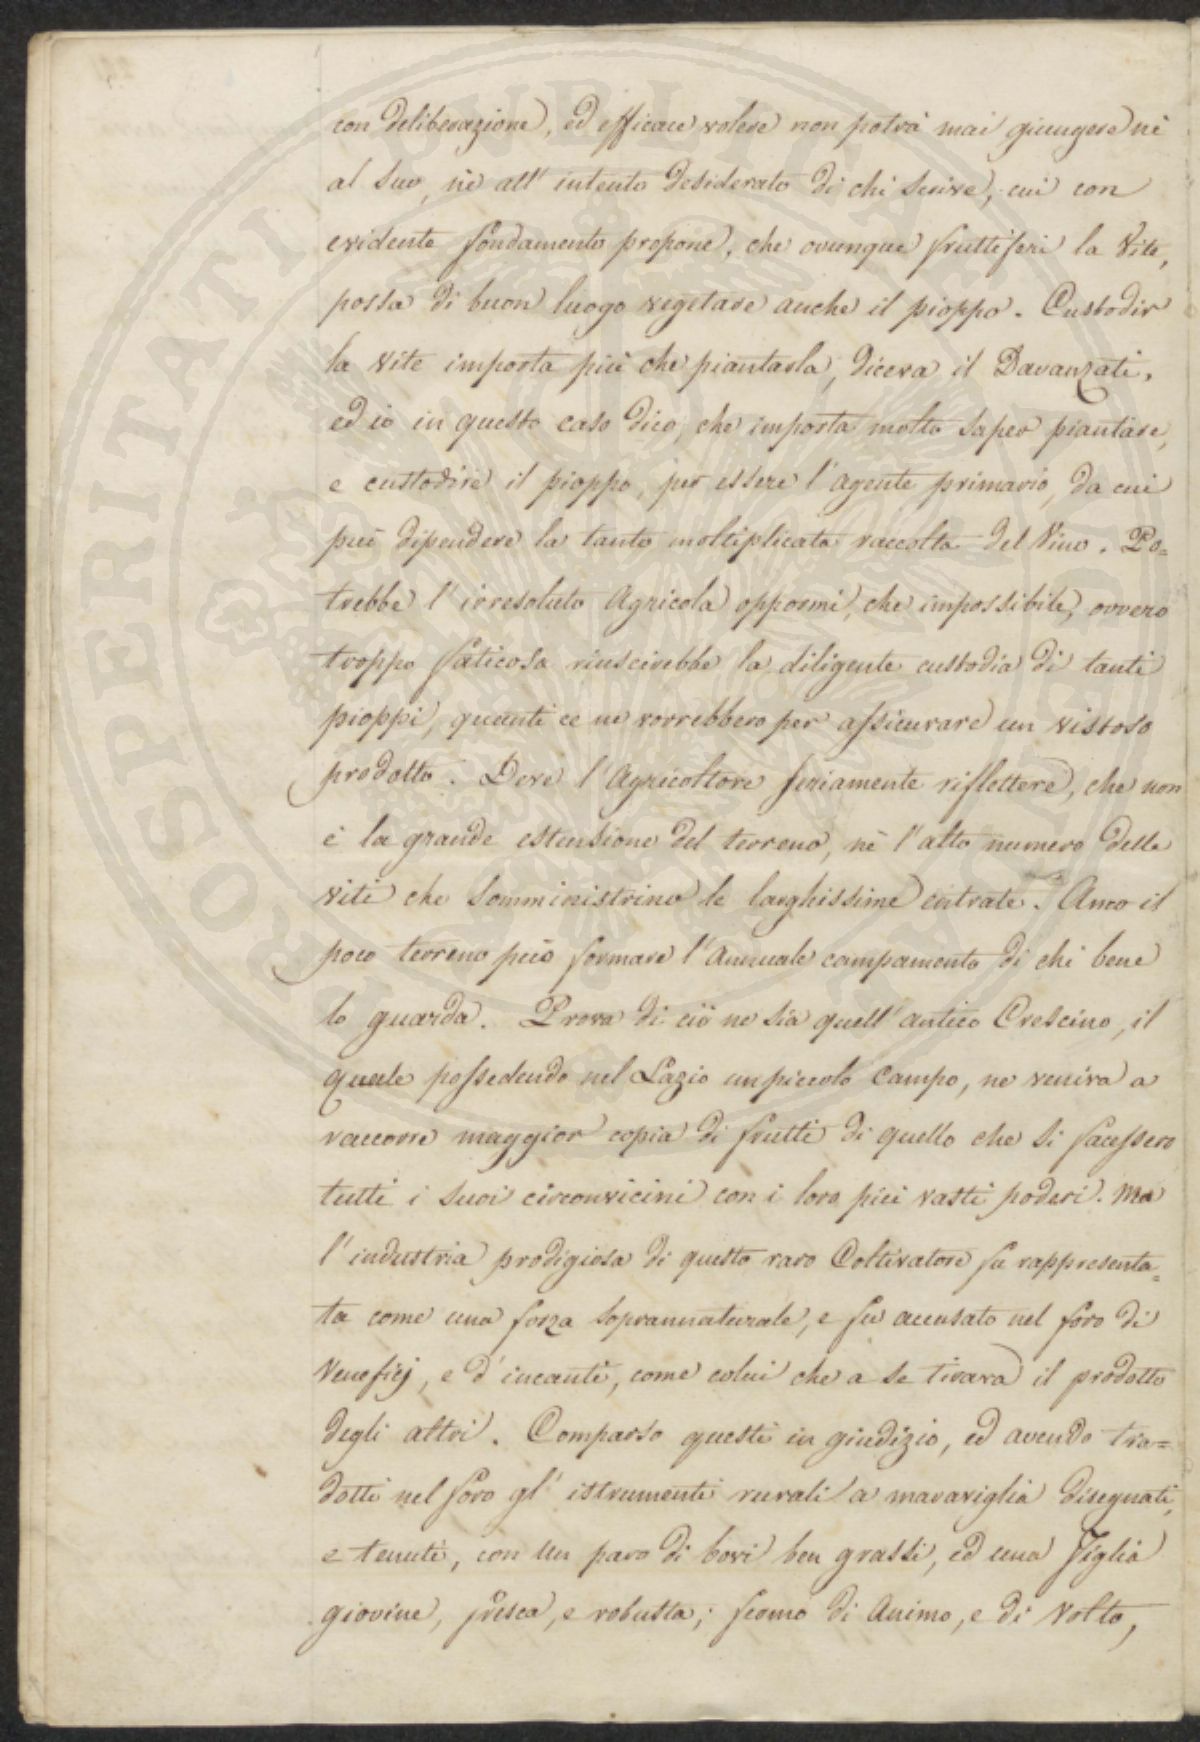 con deliberazione, ed efficace volere non potrà mai giungere nè
al suo, nè all' intento desiderato di chi scrive, cui con
evidente fondamento propone, che ovunque fruttiferi la Vite,
possa di buon luogo vegetare anche il pioppo. Custodir
la vite importa più che piantarla, diceva il Davanzati,
ed io in questo caso dico, che importa molto saper piantare,
e custodire il pioppo, per essere l' agente primario, da cui
può dipendere la tanto moltiplicata raccolta del Vino. Po=
trebbe l' irresoluto Agricola oppormi, che impossibile, ovvero
troppo faticosa riuscirebbe la diligente custodia di tanti
pioppi, quanti ce ne vorrebbero per assicurare un vistoso
prodotto. Deve l' Agricoltore seriamente riflettere, che non
è la grande estensione del terreno, nè l' alto numero delle
viti che somministrino le larghissime entrate. Anco il
poco terreno può formare l' annuale campamento di chi bene
lo guarda. Prova di ciò ne sia quell' antico Crescino, il
quale possedendo nel Lazio un piccolo Campo, ne veniva a
raccorre maggior copia di frutti di quello che si facessero
tutti i suoi circonvicini con i loro più vasti poderi. Ma
l' industria prodigiosa di questo raro Coltivatore fu rappresenta=
ta come una forza soprannaturale, e fu accusato nel foro di
Veneficj, e d' incanti, come colui che a se tirava il prodotto
degli altri. Comparso questi in giudizio, ed avendo tra=
dotti nel foro gl' istrumenti rurali a maraviglia disegnati,
e tenuti, con un paro di bovi ben grassi, ed una Figlia
giovine, fresca, e robusta; scomo di Animo, e di Volto,
PROSPERITATI PVBLICAE